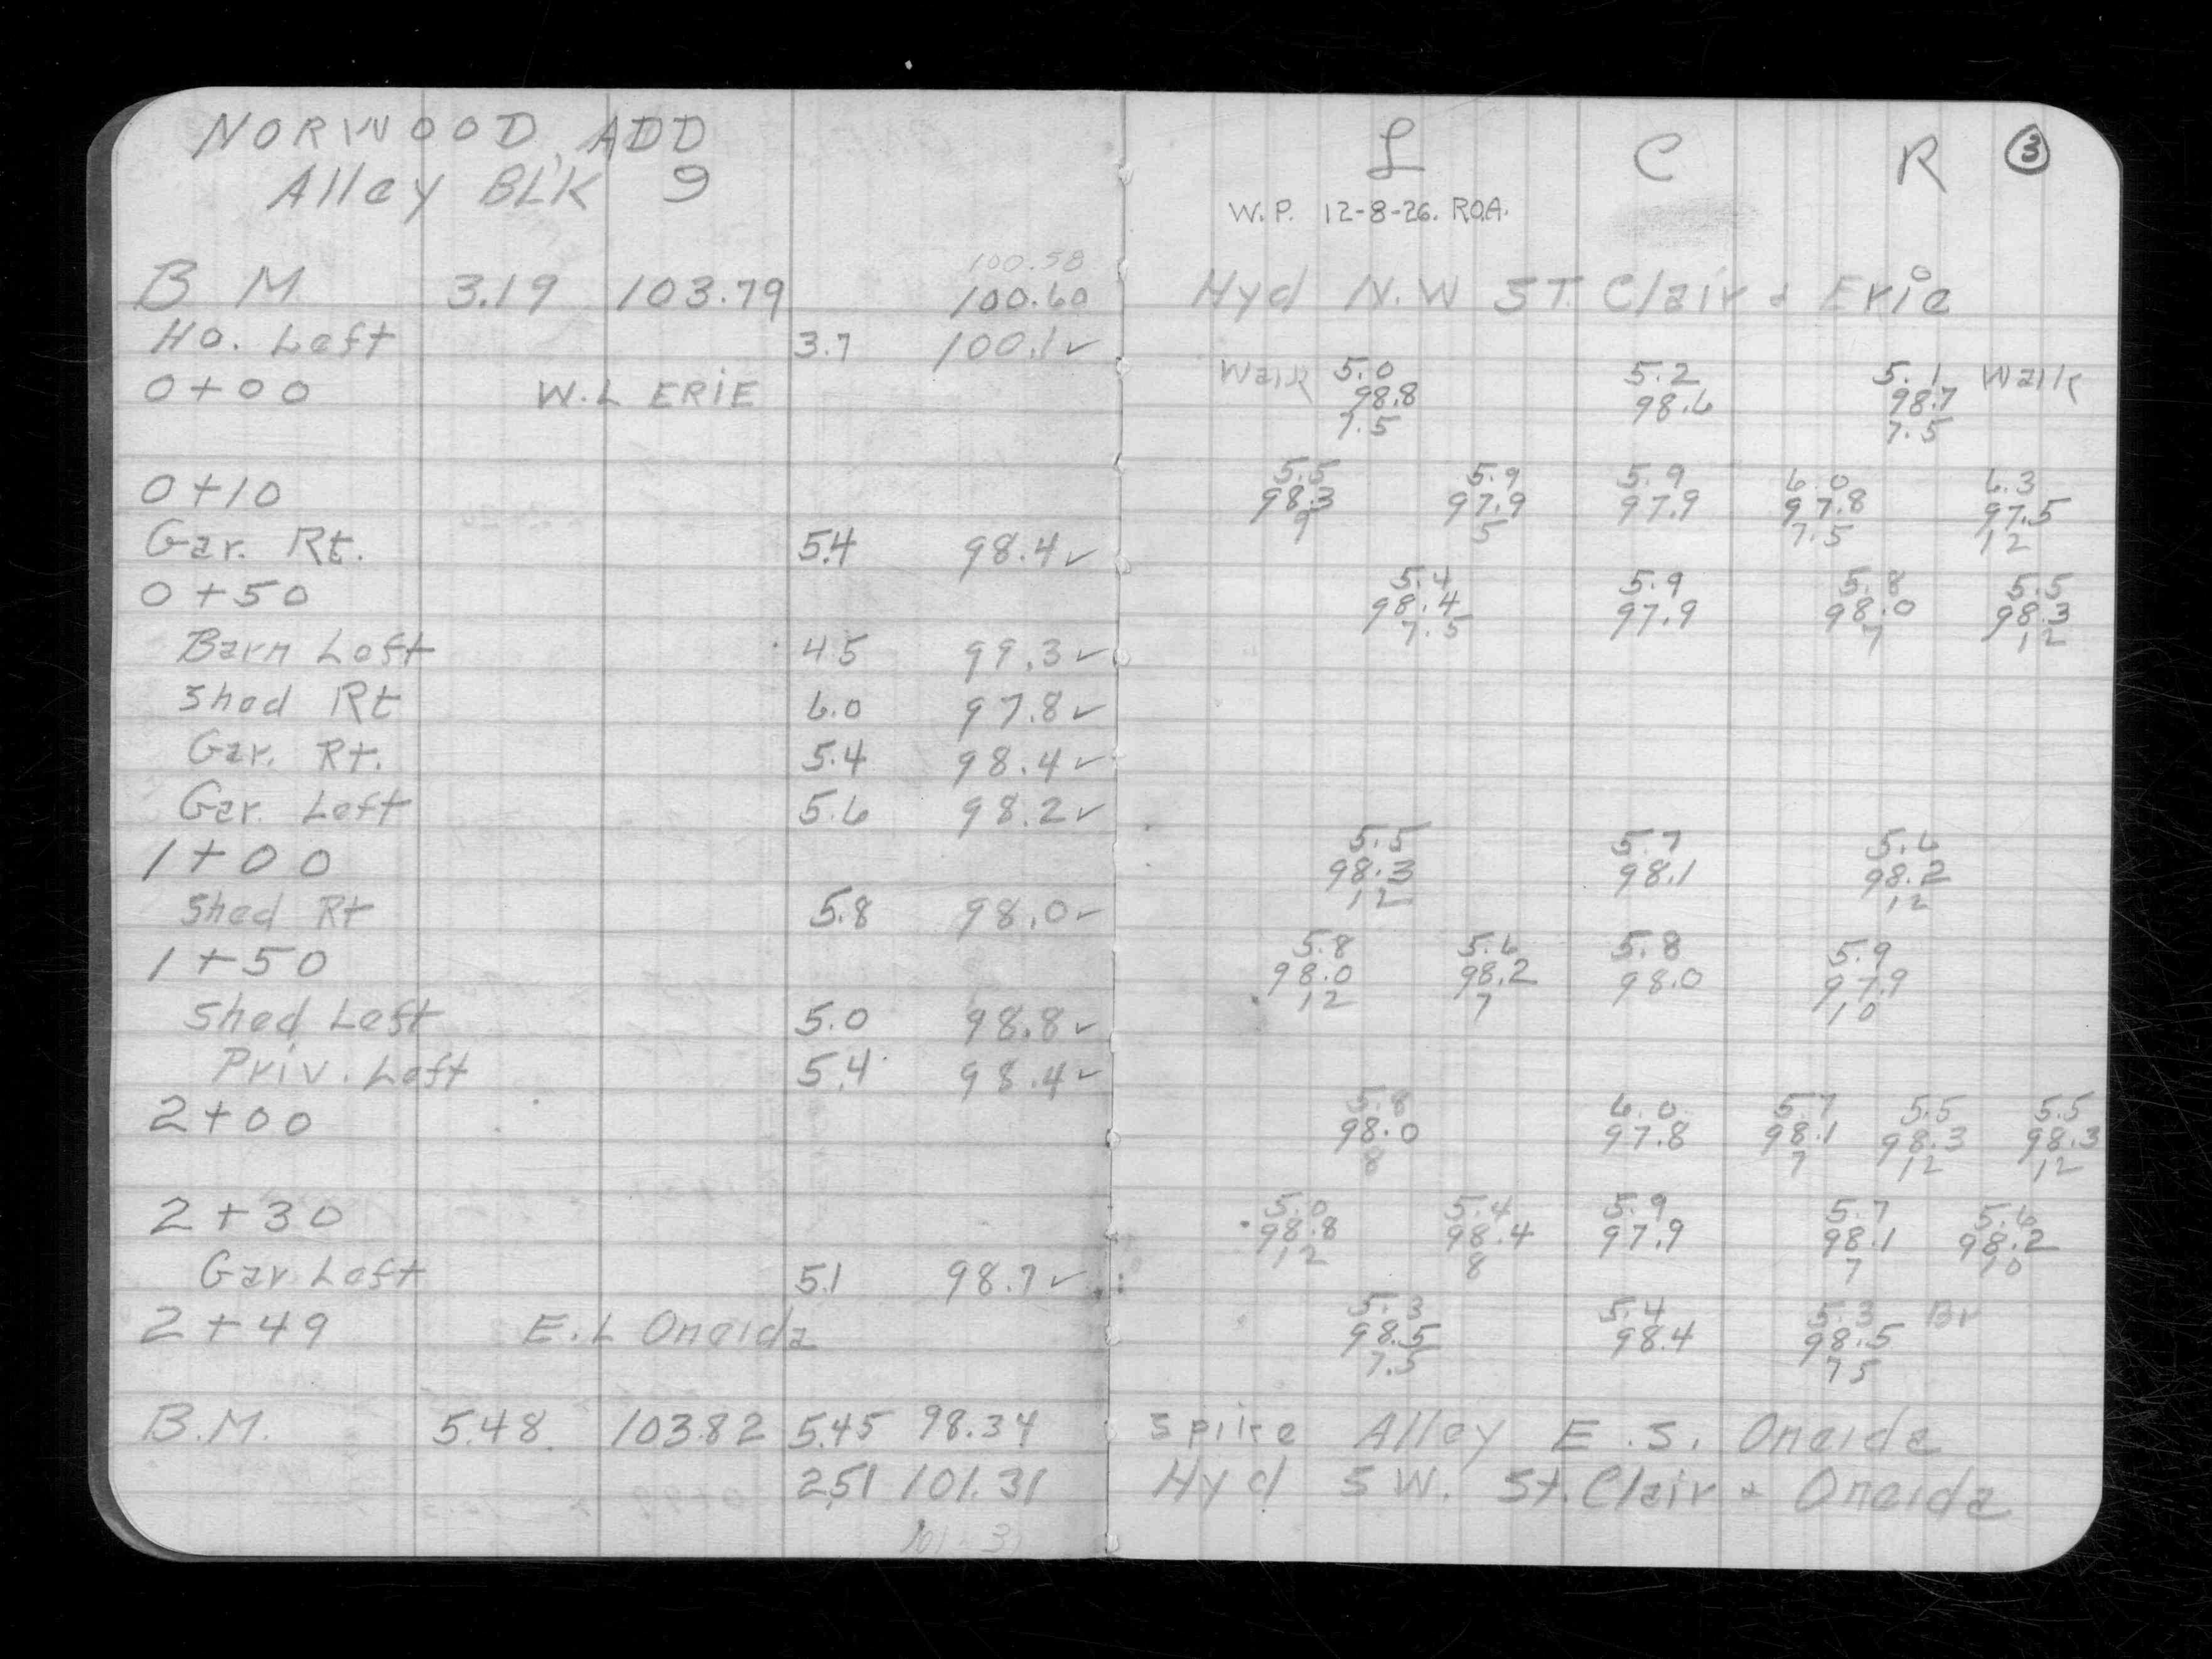 NORWOOD ADD
Alley BLK 9
B M 3.19 103.79 100.58
100.60
Ho. Left 3.7 100.1 ✓
0+00 W.L ERIE
0+10
Gar. Rt. 5.4 98.4 ✓
0+50
Barn Left 4.5 99.3 ✓
Shed Rt 6.0 97.8 ✓
Gar. Rt. 5.4 98.4 ✓
Gar. Left 5.6 98.2 ✓
1+00
Shed Rt 5.8 98.0 ✓
1+50
Shed Left 5.0 98.8 ✓
Priv. Left 5.4 98.4 ✓
2+00
2+30
Gar Left 5.1 98.7 ✓
2+49 E.L Oneida
B.M. 5.48 103.82 5.45 98.34
2.51 101.31
101.31
L C R 3
W.P. 12-8-26. R.O.A.
Hyd N.W ST. Clair & Erie
Walk 5.0 5.2 5.1 Walk
98.8 98.6 98.7
7.5 7.5
5.5 5.9 5.9 6.0 6.3
98.3 97.9 97.9 97.8 97.5
9 5 7.5 12
5.4 5.9 5.8 5.5
98.4 97.9 98.0 98.3
7.5 7 12
5.5 5.7 5.6
98.3 98.1 98.2
12 12
5.8 5.6 5.8 5.9
98.0 98.2 98.0 97.9
12 7 10
5.8 6.0 5.7 5.5 5.5
98.0 97.8 98.1 98.3 98.3
8 7 12 12
5.0 5.4 5.9 5.7 5.6
98.8 98.4 97.9 98.1 98.2
12 8 7 10
5.3 5.4 5.3 Br
98.5 98.4 98.5
7.5 7.5
Spike Alley E.S. Oneida
Hyd S W. St. Clair & Oneida